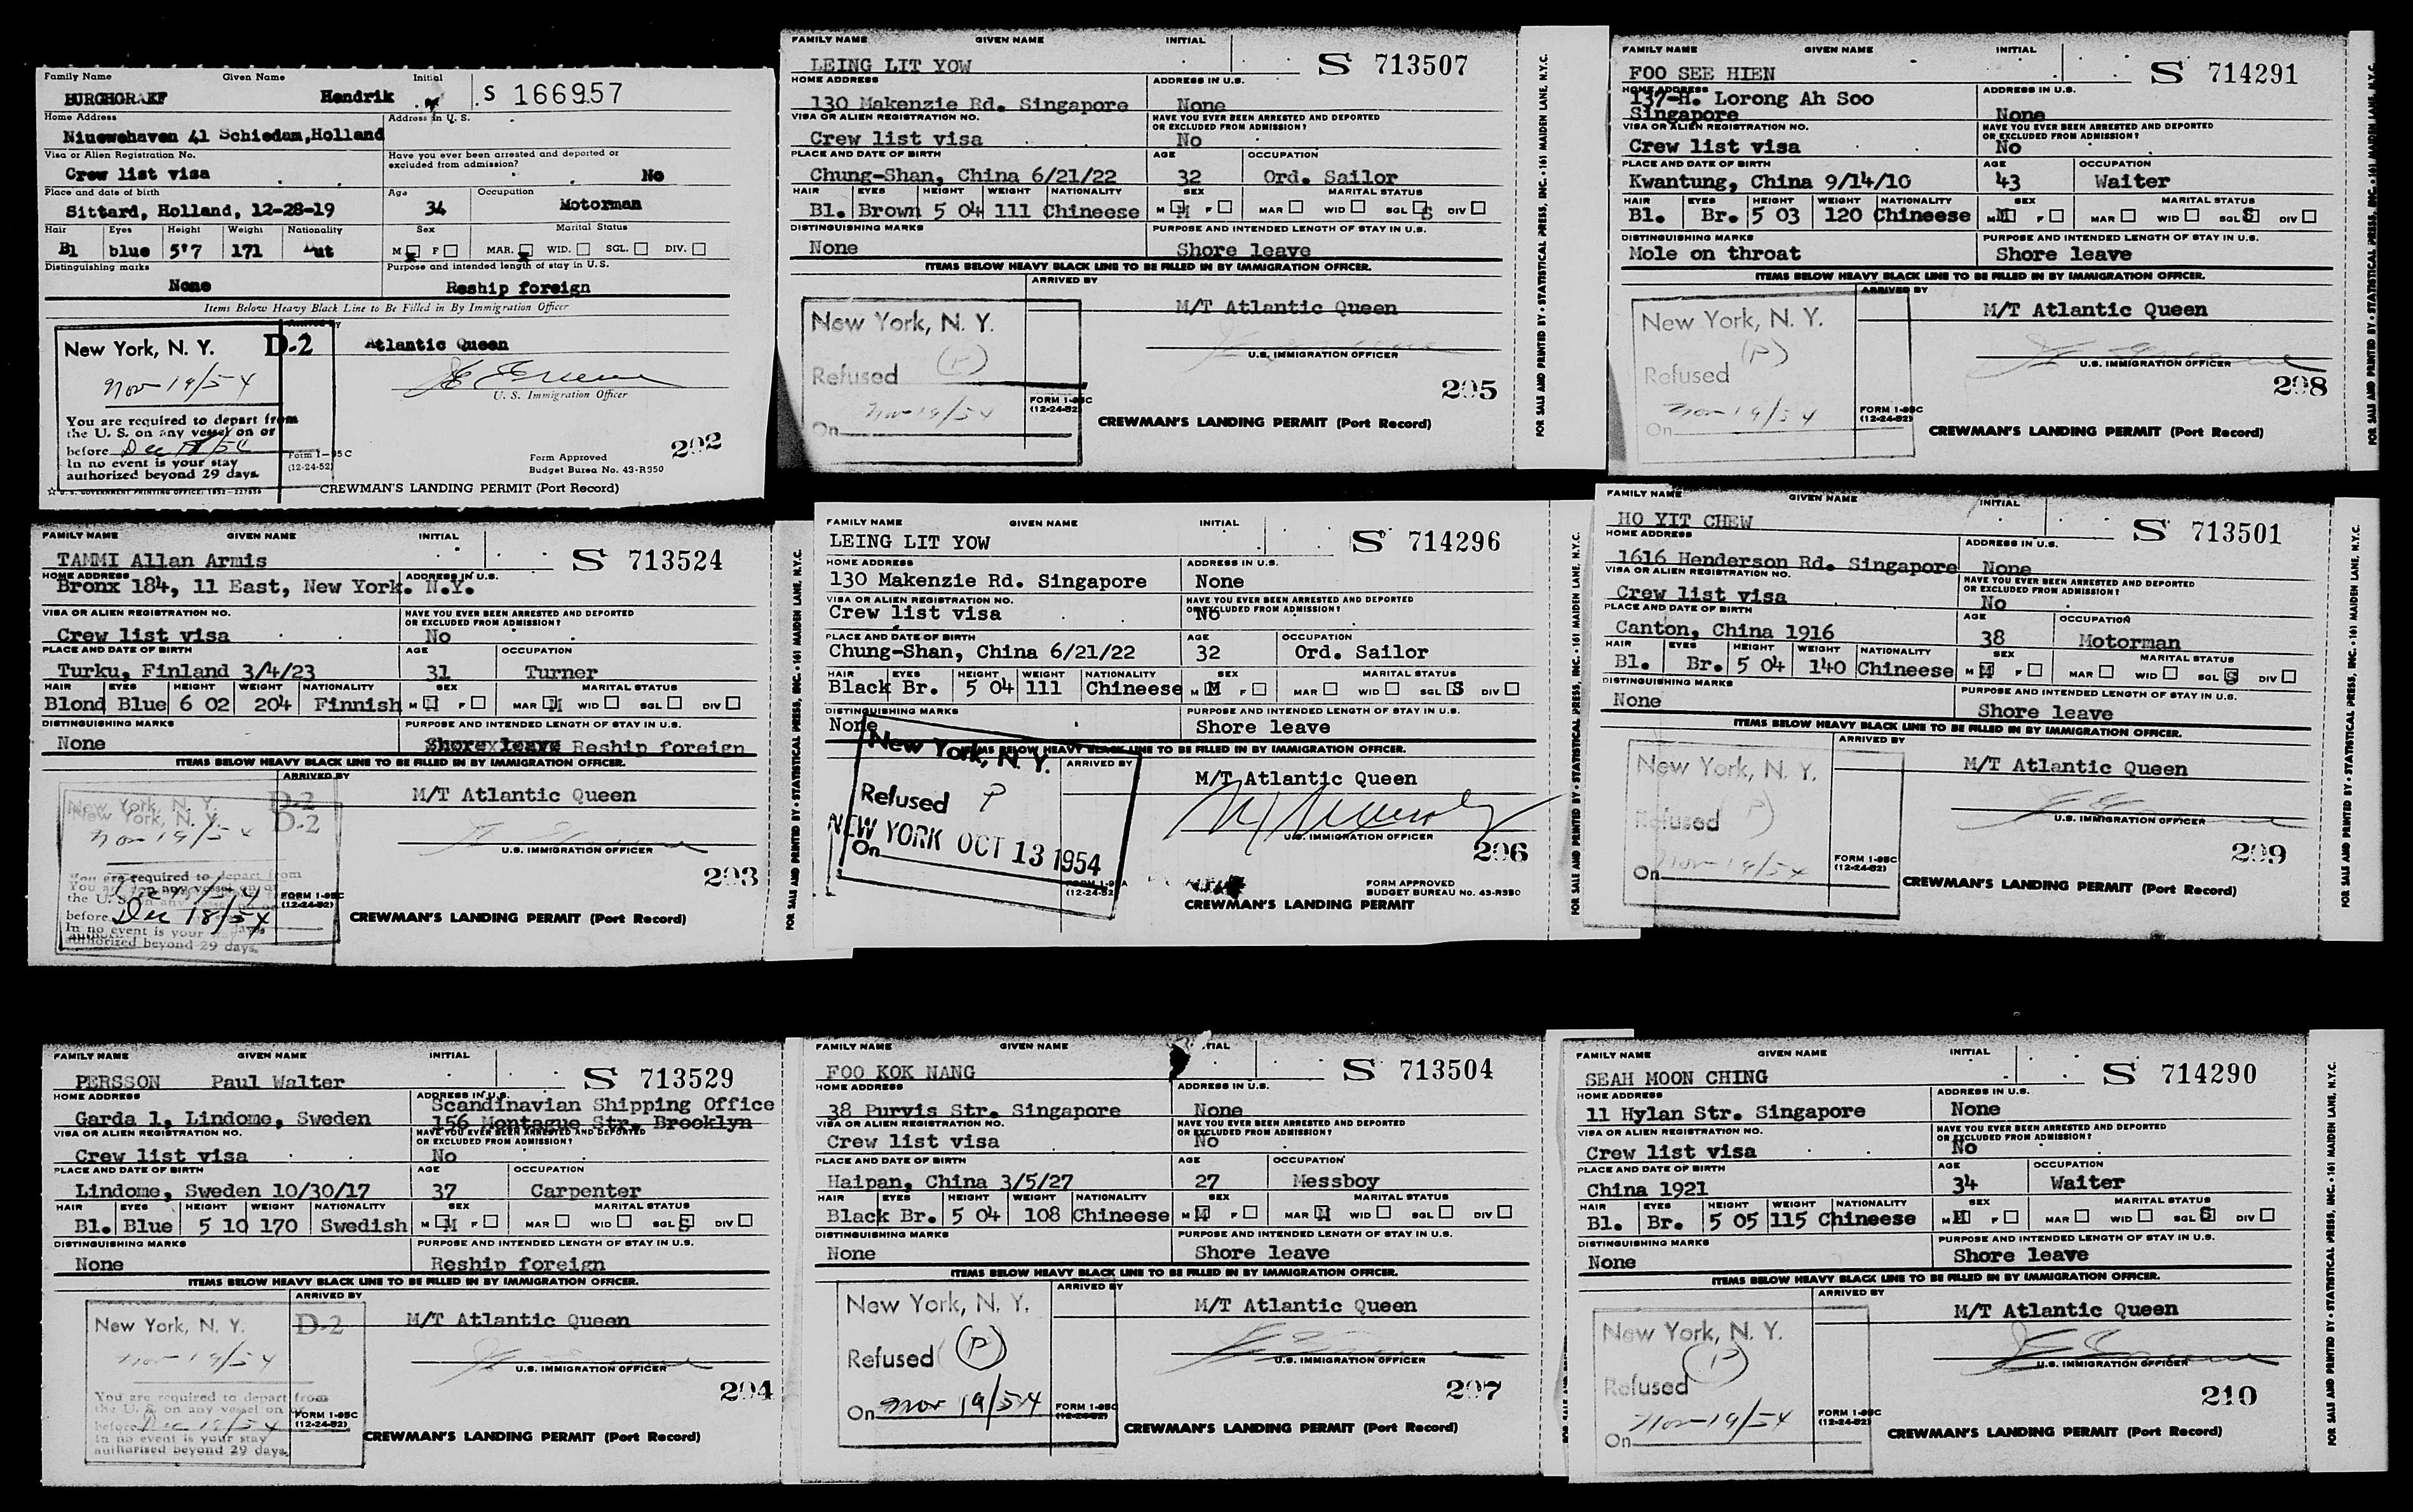 Family Name Given Name Initial
BURGHGRAEF Hendrik S 166957
Home Address Address in U. S.
Niuewehaven 41 Schiedam,Holland
Visa or Alien Registration No. Have you ever been arrested and deported or excluded from admission?
Crew list visa No
Place and date of birth Age Occupation
Sittard, Holland, 12-28-19 34 Motorman
Hair Eyes Height Weight Nationality Sex Marital Status
Bl blue 5'7 171 Dut M F MAR. WID. SGL. DIV.
Distinguishing marks Purpose and intended length of stay in U.S.
None Reship foreign
Items Below Heavy Black Line to Be Filled in By Immigration Officer
Arrived by
New York, N. Y. D-2 Atlantic Queen
Nov 19/54
U. S. Immigration Officer
You are required to depart from
the U. S. on any vessel on or
before Dec 18/54
In no event is your stay
authorized beyond 29 days.
Form I-95C
(12-24-52)
Form Approved
Budget Burea No. 43-R350
202
U. S. GOVERNMENT PRINTING OFFICE: 1952
CREWMAN'S LANDING PERMIT (Port Record)
FAMILY NAME GIVEN NAME INITIAL
LEING LIT YOW S 713507
HOME ADDRESS ADDRESS IN U.S.
130 Makenzie Rd. Singapore None
VISA OR ALIEN REGISTRATION NO. HAVE YOU EVER BEEN ARRESTED AND DEPORTED OR EXCLUDED FROM ADMISSION?
Crew list visa No
PLACE AND DATE OF BIRTH AGE OCCUPATION
Chung-Shan, China 6/21/22 32 Ord. Sailor
HAIR EYES HEIGHT WEIGHT NATIONALITY SEX MARITAL STATUS
Bl. Brown 5 04 111 Chineese M M F MAR WID SGL S DIV
DISTINGUISHING MARKS PURPOSE AND INTENDED LENGTH OF STAY IN U.S.
None Shore leave
ITEMS BELOW HEAVY BLACK LINE TO BE FILLED IN BY IMMIGRATION OFFICER.
ARRIVED BY
M/T Atlantic Queen
New York, N. Y.
(P)
U.S. IMMIGRATION OFFICER
Refused
205
On Nov 19/54
FORM I-95C
(12-24-52)
CREWMAN'S LANDING PERMIT (Port Record)
FOR SALE AND PRINTED BY • STATISTICAL PRESS, INC. • 161 MAIDEN LANE, N.Y.C.
FAMILY NAME GIVEN NAME INITIAL
FOO SEE HIEN S 714291
HOME ADDRESS ADDRESS IN U.S.
137-H. Lorong Ah Soo
Singapore None
VISA OR ALIEN REGISTRATION NO. HAVE YOU EVER BEEN ARRESTED AND DEPORTED OR EXCLUDED FROM ADMISSION?
Crew list visa No
PLACE AND DATE OF BIRTH AGE OCCUPATION
Kwantung, China 9/14/10 43 Waiter
HAIR EYES HEIGHT WEIGHT NATIONALITY SEX MARITAL STATUS
Bl. Br. 5 03 120 Chineese M M F MAR WID SGL S DIV
DISTINGUISHING MARKS PURPOSE AND INTENDED LENGTH OF STAY IN U.S.
Mole on throat Shore leave
ITEMS BELOW HEAVY BLACK LINE TO BE FILLED IN BY IMMIGRATION OFFICER.
ARRIVED BY
M/T Atlantic Queen
New York, N. Y.
(P)
U.S. IMMIGRATION OFFICER
Refused
208
On Nov 19/54
FORM I-95C
(12-24-52)
CREWMAN'S LANDING PERMIT (Port Record)
FOR SALE AND PRINTED BY • STATISTICAL PRESS, INC. • 161 MAIDEN LANE, N.Y.C.
FAMILY NAME GIVEN NAME INITIAL
TAMMI Allan Armis S 713524
HOME ADDRESS ADDRESS IN U.S.
Bronx 184, 11 East, New York. N.Y.
VISA OR ALIEN REGISTRATION NO. HAVE YOU EVER BEEN ARRESTED AND DEPORTED OR EXCLUDED FROM ADMISSION?
Crew list visa No
PLACE AND DATE OF BIRTH AGE OCCUPATION
Turku, Finland 3/4/23 31 Turner
HAIR EYES HEIGHT WEIGHT NATIONALITY SEX MARITAL STATUS
Blond Blue 6 02 204 Finnish M M F MAR M WID SGL DIV
DISTINGUISHING MARKS PURPOSE AND INTENDED LENGTH OF STAY IN U.S.
None Shore leave Reship foreign
ITEMS BELOW HEAVY BLACK LINE TO BE FILLED IN BY IMMIGRATION OFFICER.
ARRIVED BY
M/T Atlantic Queen
New York, N. Y. D-2
New York, N. Y. D-2
Nov 19/54
U.S. IMMIGRATION OFFICER
203
You are required to depart from
the U. S. on any vessel on or
before Dec 18/54
In no event is your stay
authorized beyond 29 days.
FORM I-95C
(12-24-52)
CREWMAN'S LANDING PERMIT (Port Record)
FOR SALE AND PRINTED BY • STATISTICAL PRESS, INC. • 161 MAIDEN LANE, N.Y.C.
FAMILY NAME GIVEN NAME INITIAL
LEING LIT YOW S 714296
HOME ADDRESS ADDRESS IN U.S.
130 Makenzie Rd. Singapore None
VISA OR ALIEN REGISTRATION NO. HAVE YOU EVER BEEN ARRESTED AND DEPORTED OR EXCLUDED FROM ADMISSION?
Crew list visa No
PLACE AND DATE OF BIRTH AGE OCCUPATION
Chung-Shan, China 6/21/22 32 Ord. Sailor
HAIR EYES HEIGHT WEIGHT NATIONALITY SEX MARITAL STATUS
Black Br. 5 04 111 Chineese M M F MAR WID SGL S DIV
DISTINGUISHING MARKS PURPOSE AND INTENDED LENGTH OF STAY IN U.S.
None Shore leave
ITEMS BELOW HEAVY BLACK LINE TO BE FILLED IN BY IMMIGRATION OFFICER.
New York, N. Y.
ARRIVED BY
M/T Atlantic Queen
Refused P
U.S. IMMIGRATION OFFICER
NEW YORK OCT 13 1954
On
206
(12-24-52)
FORM APPROVED
BUDGET BUREAU No. 43-R350
CREWMAN'S LANDING PERMIT
FOR SALE AND PRINTED BY • STATISTICAL PRESS, INC. • 161 MAIDEN LANE, N.Y.C.
FAMILY NAME GIVEN NAME INITIAL
HO YIT CHEW S 713501
HOME ADDRESS ADDRESS IN U.S.
1616 Henderson Rd. Singapore None
VISA OR ALIEN REGISTRATION NO. HAVE YOU EVER BEEN ARRESTED AND DEPORTED OR EXCLUDED FROM ADMISSION?
Crew list visa No
PLACE AND DATE OF BIRTH AGE OCCUPATION
Canton, China 1916 38 Motorman
HAIR EYES HEIGHT WEIGHT NATIONALITY SEX MARITAL STATUS
Bl. Br. 5 04 140 Chineese M M F MAR WID SGL S DIV
DISTINGUISHING MARKS PURPOSE AND INTENDED LENGTH OF STAY IN U.S.
None Shore leave
ITEMS BELOW HEAVY BLACK LINE TO BE FILLED IN BY IMMIGRATION OFFICER.
ARRIVED BY
M/T Atlantic Queen
New York, N. Y.
(P)
Refused
U.S. IMMIGRATION OFFICER
209
On Nov 19/54
FORM I-95C
(12-24-52)
CREWMAN'S LANDING PERMIT (Port Record)
FOR SALE AND PRINTED BY • STATISTICAL PRESS, INC. • 161 MAIDEN LANE, N.Y.C.
FAMILY NAME GIVEN NAME INITIAL
PERSSON Paul Walter S 713529
HOME ADDRESS ADDRESS IN U.S.
Scandinavian Shipping Office
Garda 1, Lindome, Sweden 156 Montague Str. Brooklyn
VISA OR ALIEN REGISTRATION NO. HAVE YOU EVER BEEN ARRESTED AND DEPORTED OR EXCLUDED FROM ADMISSION?
Crew list visa No
PLACE AND DATE OF BIRTH AGE OCCUPATION
Lindome, Sweden 10/30/17 37 Carpenter
HAIR EYES HEIGHT WEIGHT NATIONALITY SEX MARITAL STATUS
Bl. Blue 5 10 170 Swedish M M F MAR WID SGL S DIV
DISTINGUISHING MARKS PURPOSE AND INTENDED LENGTH OF STAY IN U.S.
None Reship foreign
ITEMS BELOW HEAVY BLACK LINE TO BE FILLED IN BY IMMIGRATION OFFICER.
ARRIVED BY
New York, N. Y. D-2 M/T Atlantic Queen
Nov 19/54
U.S. IMMIGRATION OFFICER
204
You are required to depart from
the U. S. on any vessel on or
before Dec 18/54
In no event is your stay
authorized beyond 29 days.
FORM I-95C
(12-24-52)
CREWMAN'S LANDING PERMIT (Port Record)
FAMILY NAME GIVEN NAME INITIAL
FOO KOK NANG S 713504
HOME ADDRESS ADDRESS IN U.S.
38 Purvis Str. Singapore None
VISA OR ALIEN REGISTRATION NO. HAVE YOU EVER BEEN ARRESTED AND DEPORTED OR EXCLUDED FROM ADMISSION?
Crew list visa No
PLACE AND DATE OF BIRTH AGE OCCUPATION
Haipan, China 3/5/27 27 Messboy
HAIR EYES HEIGHT WEIGHT NATIONALITY SEX MARITAL STATUS
Black Br. 5 04 108 Chineese M M F MAR M WID SGL DIV
DISTINGUISHING MARKS PURPOSE AND INTENDED LENGTH OF STAY IN U.S.
None Shore leave
ITEMS BELOW HEAVY BLACK LINE TO BE FILLED IN BY IMMIGRATION OFFICER.
ARRIVED BY
New York, N. Y. M/T Atlantic Queen
Refused (P)
U.S. IMMIGRATION OFFICER
207
On Nov 19/54
FORM I-95C
(12-24-52)
CREWMAN'S LANDING PERMIT (Port Record)
FOR SALE AND
FAMILY NAME GIVEN NAME INITIAL
SEAH MOON CHING S 714290
HOME ADDRESS ADDRESS IN U.S.
11 Hylan Str. Singapore None
VISA OR ALIEN REGISTRATION NO. HAVE YOU EVER BEEN ARRESTED AND DEPORTED OR EXCLUDED FROM ADMISSION?
Crew list visa No
PLACE AND DATE OF BIRTH AGE OCCUPATION
China 1921 34 Waiter
HAIR EYES HEIGHT WEIGHT NATIONALITY SEX MARITAL STATUS
Bl. Br. 5 05 115 Chineese M M F MAR WID SGL S DIV
DISTINGUISHING MARKS PURPOSE AND INTENDED LENGTH OF STAY IN U.S.
None Shore leave
ITEMS BELOW HEAVY BLACK LINE TO BE FILLED IN BY IMMIGRATION OFFICER.
ARRIVED BY
M/T Atlantic Queen
New York, N. Y.
(P)
U.S. IMMIGRATION OFFICER
Refused
210
On Nov 19/54
FORM I-95C
(12-24-52)
CREWMAN'S LANDING PERMIT (Port Record)
FOR SALE AND PRINTED BY • STATISTICAL PRESS, INC. • 161 MAIDEN LANE, N.Y.C.